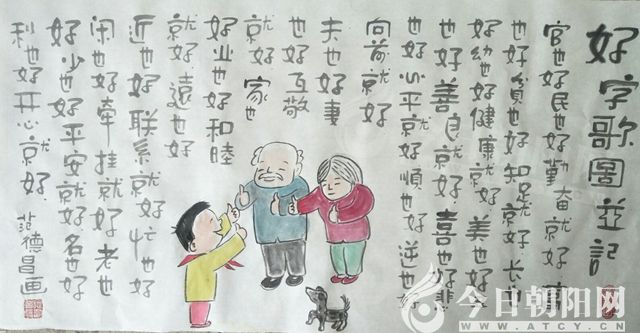 好字歌圖並記
官也好民也好勤奋就好富
也好貧也好知足就好长也
好幼也好健康就好美也好
也好善良就好喜也好悲
也好心平就好順也好逆也
向前就好
夫也好妻
也好互敬
就好家也
好业也好和睦
就好遠也好
近也好联系就好忙也好
闲也好牵挂就好老也
好少也好平安就好名也好
利也好开心就好
范德昌画
今日朝阳网
WWW.ATCY.CN